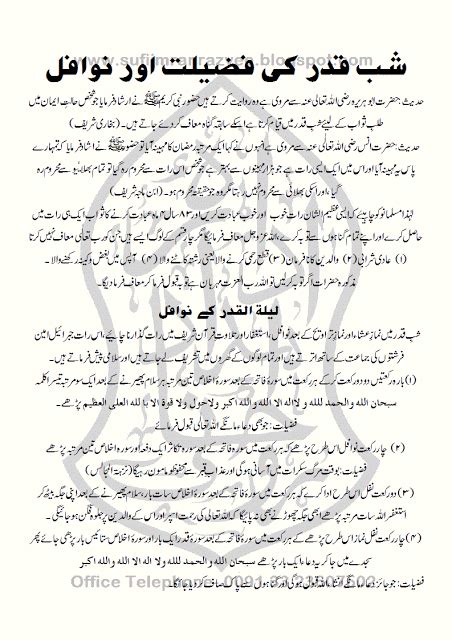 www.sufiimranrazvee.blogspot.com
شب قدر کی فضیلت اور نوافل
حدیث: حضرت ابو ہریرہ رضی اللہ تعالی عنہ سے مروی ہے وہ روایت کرتے ہیں حضور نبی کریم ﷺ نے ارشاد فرمایا جو شخص حالت ایمان میں
طلب ثواب کے لیئے شب قدر میں قیام کرتا ہے اسکے سابقہ گناہ معاف کر دئے جاتے ہیں۔ (بخاری شریف)
حدیث: حضرت انس رضی اللہ تعالی عنہ سے مروی ہے انہوں نے کہا ایک مرتبہ رمضان کا مہینہ آیا تو حضور ﷺ نے ارشاد فرمایا کہ تمہارے
پاس یہ مہینہ آیا اور اس میں ایک ایسی رات ہے جو ہزار مہینوں سے بہتر ہے جو شخص اس رات سے محروم رہ گیا تو تمام بھلائیوں سے محروم رہ
گیا، اور اسکی بھلائی سے محروم نہیں رہتا مگر وہ جو حقیقتہ محروم ہو۔ (ابن ماجہ شریف)
لہذا مسلمانو کو چاہیئے کہ ایسی عظیم الشان رات خوب اور خوب عبادت کریں اور ۸۳ سال ۴ ماہ عبادت کرنے کا ثواب ایک ہی رات میں
حاصل کرے اور اپنے تمام گناہوں سے توبہ کرے، اللہ عزوجل معاف فرمائیگا مگر چار قسم کے لوگ ایسے ہیں جن کو رب تعالی معاف نہیں کرتا
(۱) عادی شرابی (۲) والدین کا نافرمان (۳) قطع رحمی کرنے والا یعنی رشتہ کاٹنے والا (۴) آپس میں بغض و کینہ رکھنے والا۔
مذکورہ حضرات اگر توبہ کر لیں تو اللہ رب العزت مہربان ہے توبہ قبول فرما کر معاف فرما دیگا۔
لیلة القدر کے نوافل
شب قدر میں نماز عشاء اور نماز تراویح کے بعد نوافل، استغفار اور تلاوت قرآن شریف میں رات گذارنا چاہیے، اس رات جبرائیل امین
فرشتوں کی جماعت کے ساتھ اترتے ہیں اور تمام لوگوں کے گھروں میں تشریف لے جاتے ہیں اور سلامی پیش فرماتے ہیں۔
(۱) بارہ رکعتیں دو دو رکعت کر کے ہر رکعت میں سورۂ فاتحہ کے بعد سورۂ قدر ایک مرتبہ اور سورۂ اخلاص تین مرتبہ ہر سلام پھیرنے کے بعد ایک سو مرتبہ تیسرا کلمہ
سبحان الله والحمد لله ولا اله الا الله والله اكبر ولا حول ولا قوة الا با لله العلى العظيم پڑھے۔
فضیلت: جو بھی دعا مانگے اللہ تعالی قبول فرمائے
(۲) چار رکعت نوافل اس طرح پڑھے کہ ہر رکعت میں سورۂ فاتحہ کے بعد سورۂ تکاثر ایک دفعہ اور سورۂ اخلاص تین مرتبہ پڑھے
فضیلت: بوقت مرگ سکرات میں آسانی ہوگی اور عذاب قبر سے محفوظ و مامون رہیگا (نزہتہ المجالس)
(۳) دو رکعت نفل اس طرح ادا کرے کہ ہر رکعت میں سورۂ فاتحہ کے بعد سورۂ اخلاص سات بار سلام پھیرنے کے بعد اپنی جگہ بیٹھ کر
استغفر اللہ سات مرتبہ پڑھے ابھی جگہ چھوڑنے بھی نہ پائیگا کہ اللہ تعالی کی رحمت اسپر اور اس کے والدین پر جلوہ فگن ہو جائیگی۔
(۴) چار رکعت نفل نماز اس طرح پڑھے کہ ہر رکعت میں سورۂ فاتحہ کے بعد سورۂ قدر ایک بار اور سورۂ اخلاص ستائیس بار پڑھی جائے پھر
سجدے میں جا کر یہ دعاء ایک بار پڑھے سبحان الله والحمد لله ولا اله الا الله والله اكبر
فضیلت: جو جائز دعا مانگے انشاء اللہ قبول ہوگی اور گناہوں سے پاک صاف کر دیا جائگا۔
Office Telephone